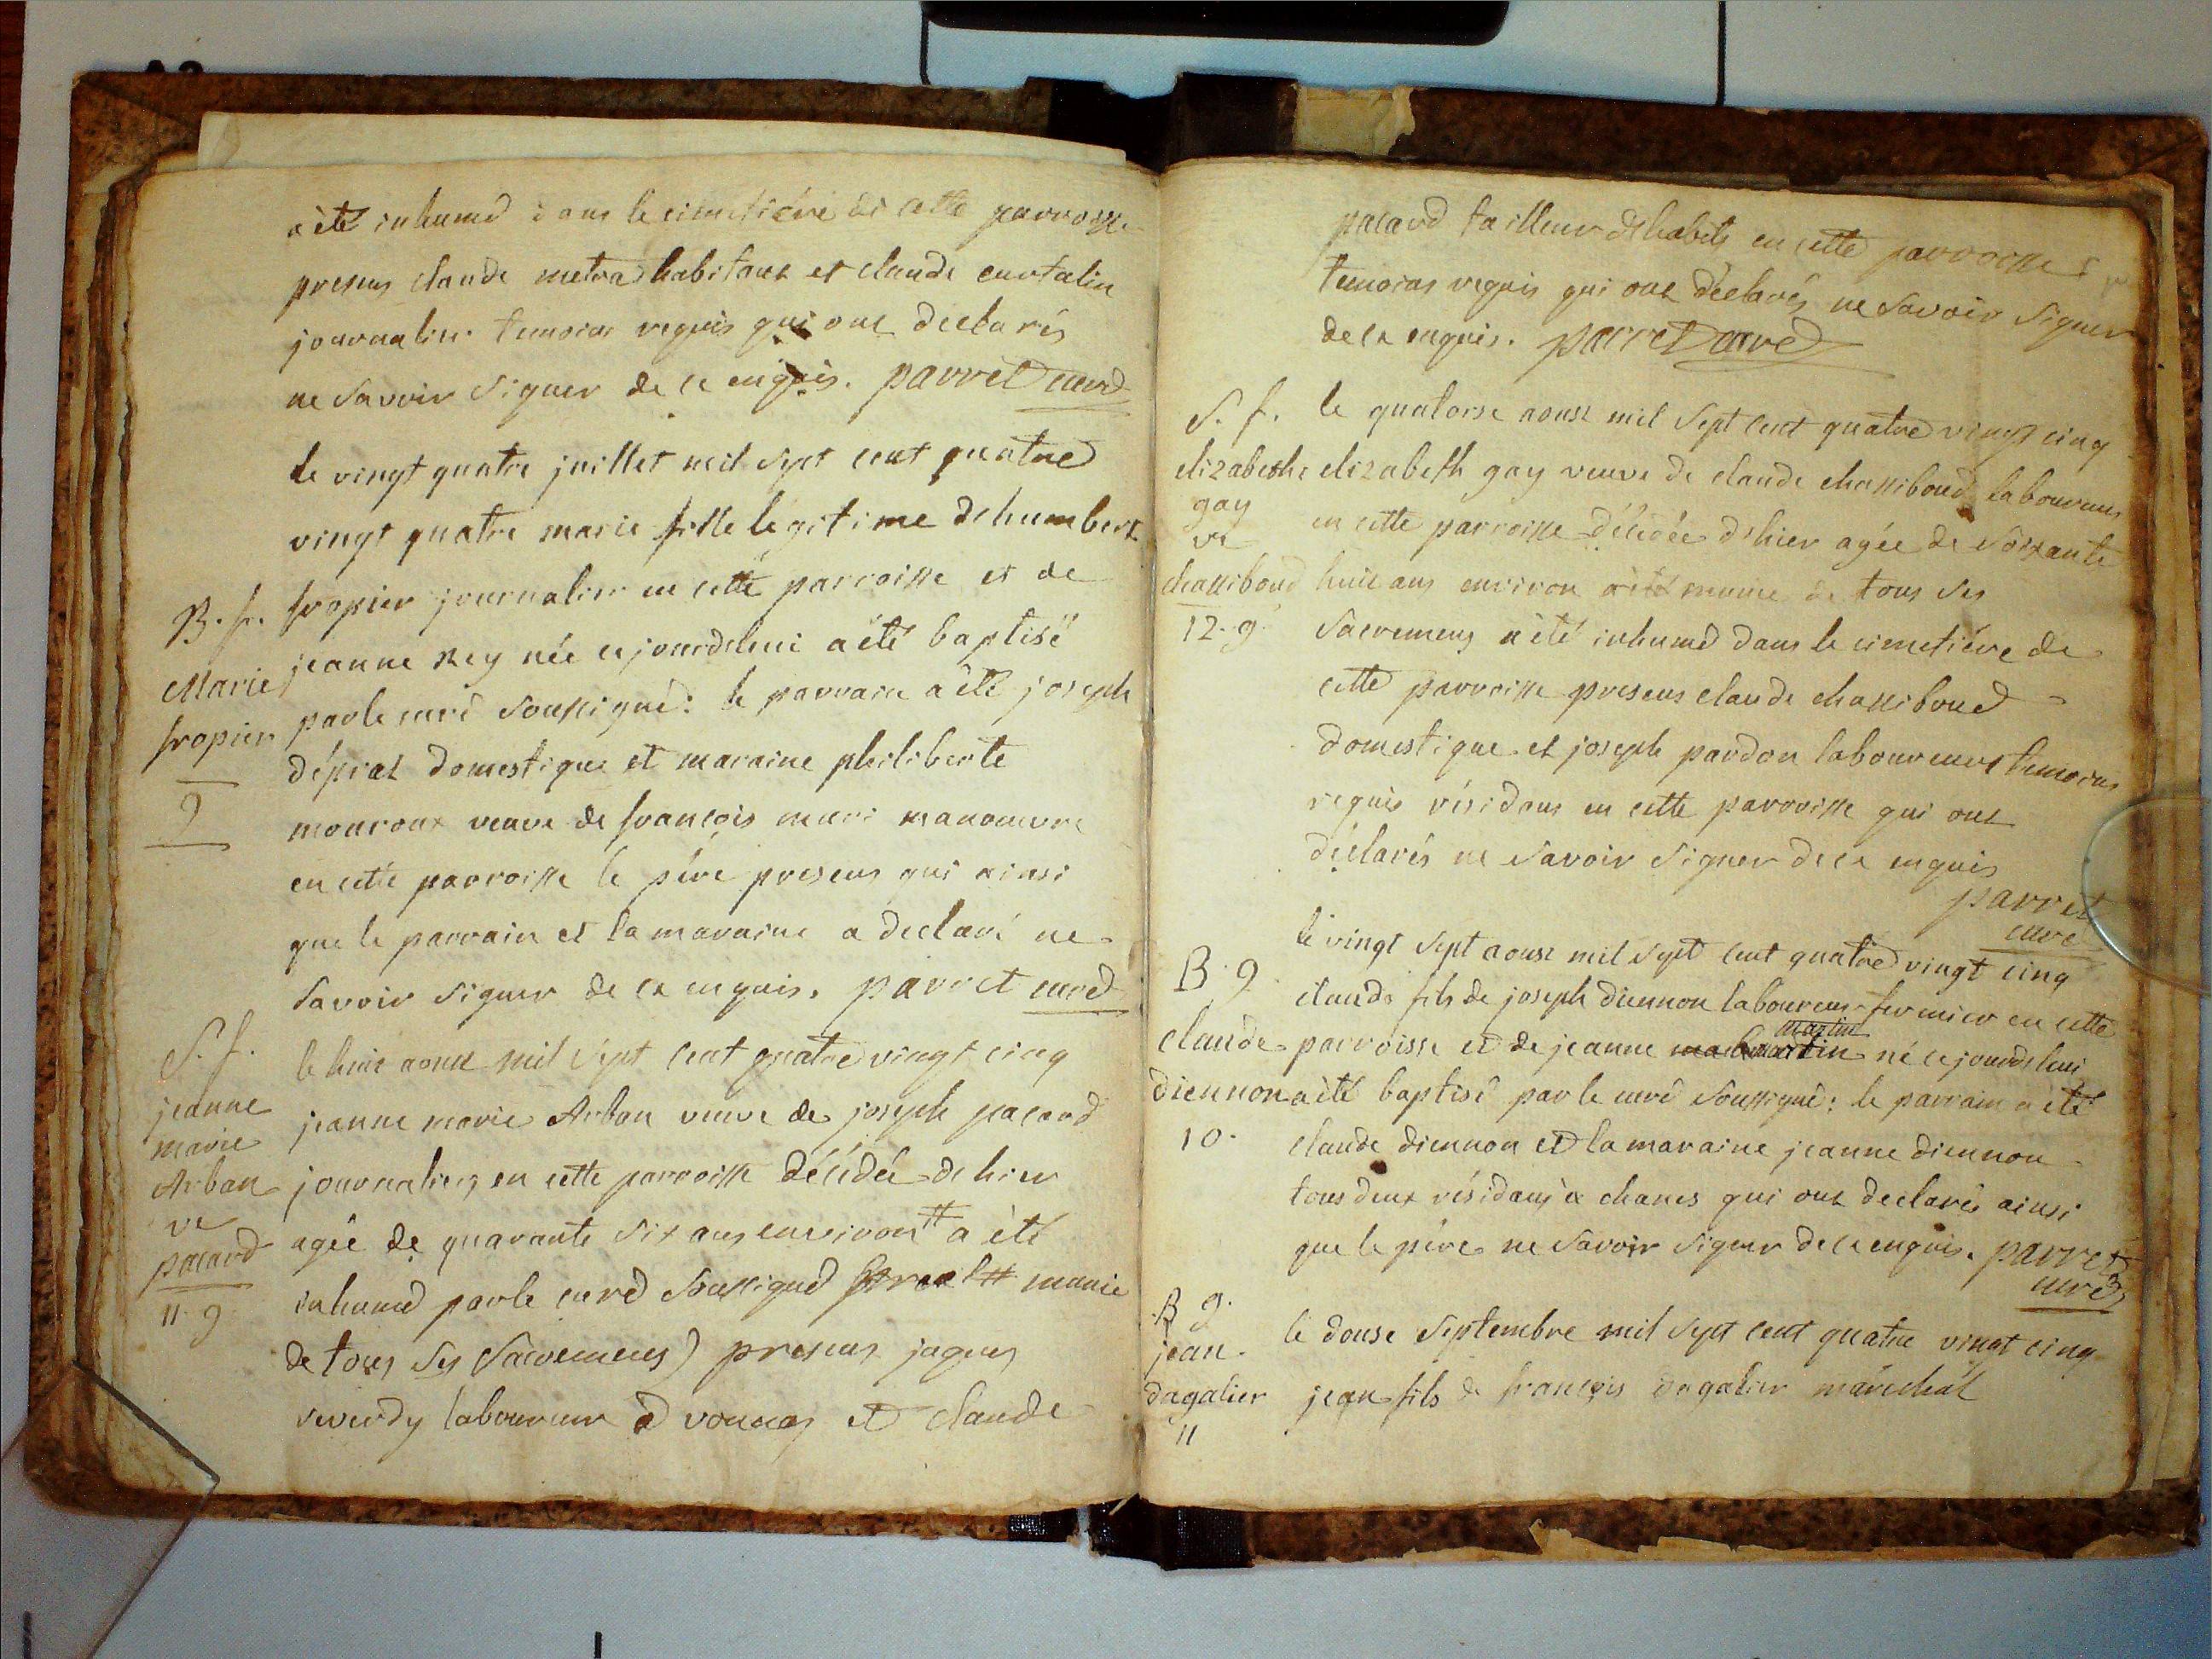 a été inhumé dans le cimetiére de cette parroisse
presens claude metra habitant et claude curtalin
journalier temoins requis qui ont declarés
ne savoir signer de ce enquis. parret curé
le vingt quatre juillet mil sept cent quatre
vingt quatre marie fille légitime de humbert
B. f. fropier journalier en cette parroisse et de
Marie jeanne rey née ce jourdehui a été baptisé
fropier par le curé soussigné: le parrain a été joseph
dépras domestique et maraine philiberte
9 mouroux veuve de françois muri manoeuvre
en cette parroisse le pére presens qui ainsi
que le parrain et la maraine a declaré ne
savoir signer de ce enquis. parret curé
S. f. le huit aoust mil sept cent quatre vingt cinq
jeanne jeanne marie Arban veuve de joseph pacard
marie
Arban journalier en cette parroisse décédée de hier
ve
pacard agée de quarante six ans environ # a été
11. 9 inhumé par le curé soussigné # munie
de tous ses sacremens) presens jaques
reverdy laboureur à vonnas et claude
pacard tailleur dhabits en cette parroisse
temoins requis qui ont déclarés ne savoir signer
de ce enquis. parret curé
S. f. le quatorse aoust mil sept cent quatre vingt cinq
elizabethe elizabeth gay veuve de claude chassiboud laboureur
gay en cette parroisse décédée dehier agée de soixante
ve
chassiboud huit ans environ a été munie de tous ses
12. 9. sacremens a été inhumé dans le cimetiére de
cette parroisse presens claude chassiboud
domestique et joseph pardon laboureur temoins
requis résidans en cette parroisse qui ont
déclarés ne savoir signer de ce enquis
parret
curé
le vingt sept aoust mil sept cent quatre vingt cinq
B. g claude fils de joseph diennon laboureur fermier en cette
martin
claude parroisse et de jeanne martin né ce jourdehui
diennon a été baptisé par le curé soussigné: le parrain a été
10. claude diennon et la maraine jeanne diennon
tous deux résidans à chanes qui ont declarés ainsi
que le pére ne savoir signer de ce enquis. parret
curé
B g. le douse septembre mil sept cent quatre vingt cinq
jean.
dagalier jean fils de françois dagalier maréchal
11